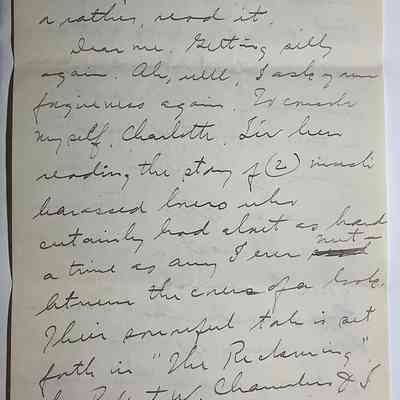 or rather, read it.
Dear me. Getting silly
again. Ah, well, I ask your
forgiveness again. To console
myself, Charlotte, I've been
reading the story of (2) much
harassed lovers who
certainly had about as hard
a time as any I ever met
between the covers of a book.
Their sorrowful tale is set
forth in "The Reckoning".
by Robert W. Chambers & I